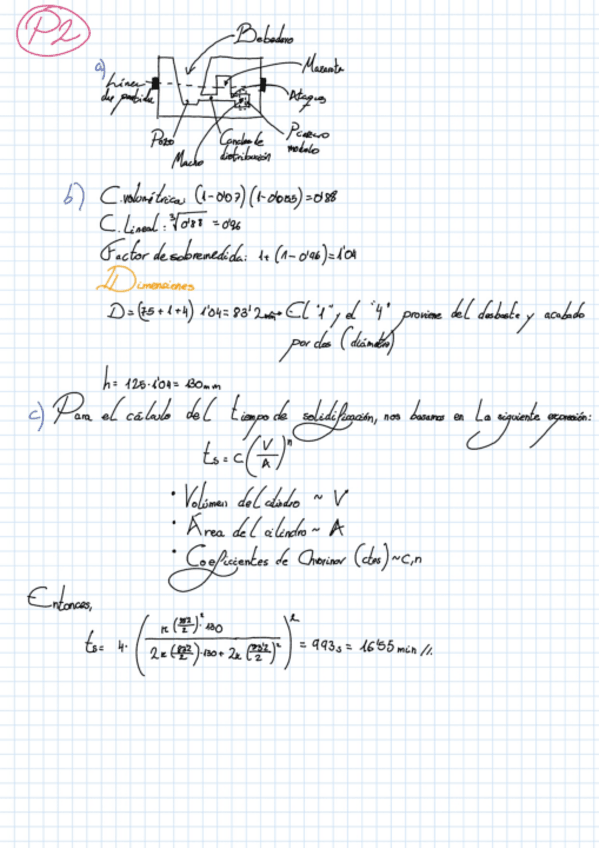 P2
Bebedero
a)
Línea de partida
Mazarota
Ataques
Pozo
Macho
Canales de distribución
modelo
b) C. volumétrica: (1-0'07)(1-0'055)=0'88
C. Lineal: ∛0'88 = 0'96
Factor de sobremedida: 1+(1-0'96)=1'04
Dimensiones
D=(75+1+4) 1'04=83'2mm → El "1" y el "4" proviene del desbaste y acabado
por dos (diámetro)
h= 125·1'04= 130mm
c) Para el cálculo del tiempo de solidificación, nos basamos en La siguiente expresión:
ts = C(V/A)^n
· Volúmen del cilindro ~ V
· Área del cilindro ~ A
· Coeficientes de (ctes) ~ C,n
Entonces,
ts= 4·(π(83'2/2)²·130 / 2π(83'2/2)·130+2π(83'2/2)²)² = 993s = 16'55 min //.